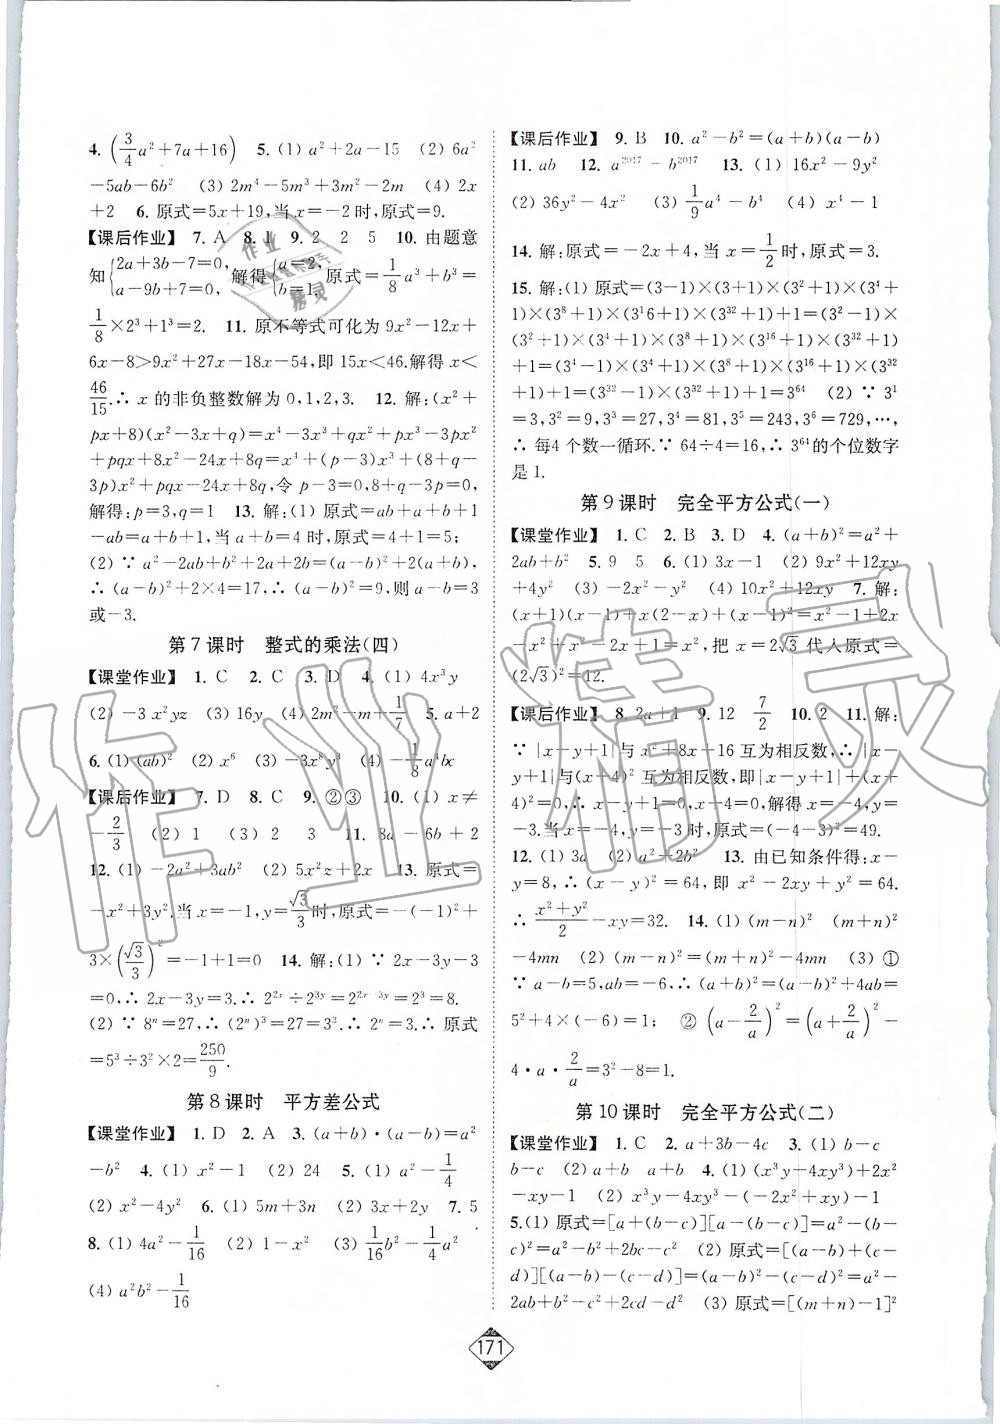 4. (3/4a²+7a+16) 5. (1) a²+2a-15 (2) 6a²
-5ab-6b² (3) 2m⁴-5m³+3m²-2m (4) 2x
+2 6. 原式=5x+19,当 x=-2时,原式=9.
【课后作业】 7. A 8. 1 9. 2 2 5 10. 由题意
知{2a+3b-7=0, a-9b+7=0, 解得{a=2, b=1. 原式=1/8a³+b³=
1/8×2³+1³=2. 11. 原不等式可化为 9x²-12x+
6x-8>9x²+27x-18x-54,即 15x<46.解得 x<
46/15.∴ x 的非负整数解为 0,1,2,3. 12. 解:(x²+
px+8)(x²-3x+q)=x⁴-3x³+qx²+px³-3px²
+pqx+8x²-24x+8q=x⁴+(p-3)x³+(8+q-
3p)x²+pqx-24x+8q,令 p-3=0,8+q-3p=0,
解得:p=3,q=1 13. 解:(1) 原式=ab+a+b+1
-ab=a+b+1,当 a+b=4时,原式=4+1=5;
(2) ∵ a²-2ab+b²+2a+2b=(a-b)²+2(a+b),
∴ (a-b)²+2×4=17,∴ (a-b)²=9,则 a-b=3
或-3.
第 7 课时 整式的乘法(四)
【课堂作业】 1. C 2. C 3. D 4. (1) 4x³y
(2) -3x²yz (3) 16y (4) 2m²-m+1/7 5. a+2
6. (1) (ab)² (2) x⁶ (3) -3x⁸y³ (4) -1/8a⁴bc
【课后作业】 7. D 8. C 9. ②③ 10. (1) x≠
-2/3 (2) 1 (3) 2 3 11. 8a-6b+2
12. (1) -2a²+3ab² (2) 5x²z+2x 13. 原式=
-x²+3y².当 x=-1,y=√3/3时,原式=-(-1)²+
3×(√3/3)²=-1+1=0 14. 解:(1) ∵ 2x-3y-3
=0,∴ 2x-3y=3.∴ 2²ˣ÷2³ʸ=2²ˣ⁻³ʸ=2³=8.
(2) ∵ 8ⁿ=27,∴ (2ⁿ)³=27=3³.∴ 2ⁿ=3.∴ 原式
=5³÷3²×2=250/9.
第 8 课时 平方差公式
【课堂作业】 1. D 2. A 3. (a+b)·(a-b)=a²
-b² 4. (1) x²-1 (2) 24 5. (1) a²-1/4
(2) x²-4y² 6. (1) 5m+3n (2) 3x+2y 7. 5
8. (1) 4a²-1/16 (2) 1-x² (3) 1/16b²-1/4a²
(4) a²b²-1/16
【课后作业】 9. B 10. a²-b²=(a+b)(a-b)
11. ab 12. a²⁰¹⁷-b²⁰¹⁷ 13. (1) 16x²-9y²
(2) 36y²-4x² (3) 1/9a⁴-b² (4) x⁴-1
14. 解:原式=-4x+5,当 x=1/2时,原式=3.
15. 解:(1) 原式=(3-1)×(3+1)×(3²+1)×(3⁴+
1)×(3⁸+1)×(3¹6+1)×(3³²+1)+1=(3²-1)×
(3²+1)×(3⁴+1)×(3⁸+1)×(3¹⁶+1)×(3³²+1)
+1=(3⁴-1)×(3⁴+1)×(3⁸+1)×(3¹⁶+1)×(3³²
+1)+1=(3³²-1)×(3³²+1)+1=3⁶⁴ (2) ∵ 3¹
=3,3²=9,3³=27,3⁴=81,3⁵=243,3⁶=729,…,
∴ 每4个数一循环.∵ 64÷4=16,∴ 3⁶⁴的个位数字
是 1.
第 9 课时 完全平方公式(一)
【课堂作业】 1. C 2. B 3. D 4. (a+b)²=a²+
2ab+b² 5. 9 5 6. (1) 3x-1 (2) 9x²+12xy
+4y² (3) -2x²-y² (4) 10x²+12xy 7. 解:
(x+1)(x-1)-x(2-x)+(x-1)²=x²-1+2x
-x²+x²-2x+1=x²,把 x=2√3代入原式=
(2√3)²=12.
【课后作业】 8. 2a+1 9. 12 7/2 10. 2 11. 解:
∵ |x-y+1|与 x²+8x+16 互为相反数,∴ |x-y
+1|与(x+4)²互为相反数,即|x-y+1|+(x+
4)²=0,∴ x-y+1=0,x+4=0,解得 x=-4,y=
-3.当 x=-4,y=-3时,原式=(-4-3)²=49.
12. (1) 3a (2) a²+2b² 13. 由已知条件得:x-
y=8,∴ (x-y)²=64,即 x²-2xy+y²=64.
∴ (x²+y²)/2-xy=32. 14. (1) (m-n)² (m+n)²
-4mn (2) (m-n)²=(m+n)²-4mn (3) ①
∵ a-b=5,ab=-6,∴ (a+b)²=(a-b)²+4ab=
5²+4×(-6)=1; ② (a-2/a)²=(a+2/a)²-
4·a·2/a=3²-8=1.
第 10 课时 完全平方公式(二)
【课堂作业】 1. C 2. a+3b-4c 3. (1) b-c
b-c (2) a+b a+b 4. (1) (x³y-4xy³)+2x²
-xy-1 (2) x³y-4xy³-(-2x²+xy)-1
5.(1) 原式=[a+(b-c)][a-(b-c)]=a²-(b-
c)²=a²-b²+2bc-c² (2) 原式=[(a-b)+(c-
d)][(a-b)-(c-d)]=(a-b)²-(c-d)²=a²-
2ab+b²-c²+2cd-d² (3) 原式=[(m+n)-1]²
171
作业精灵